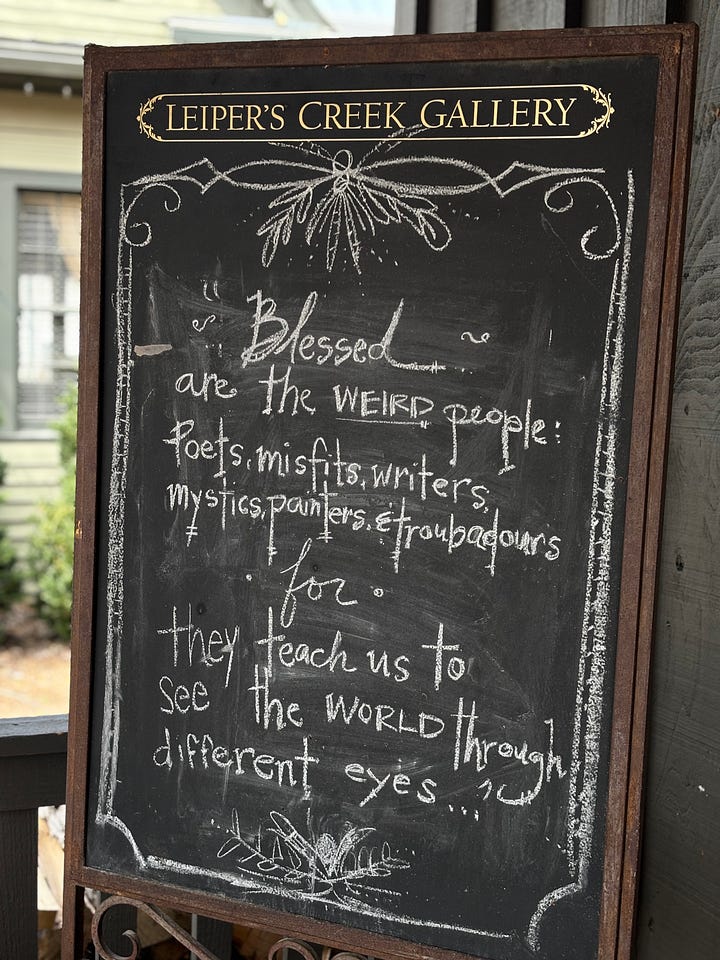 LEIPER'S CREEK GALLERY
"Blessed
are the WEIRD people:
Poets, misfits, writers,
mystics, painters, & troubadours
for
they teach us to
see the WORLD through
different eyes..."